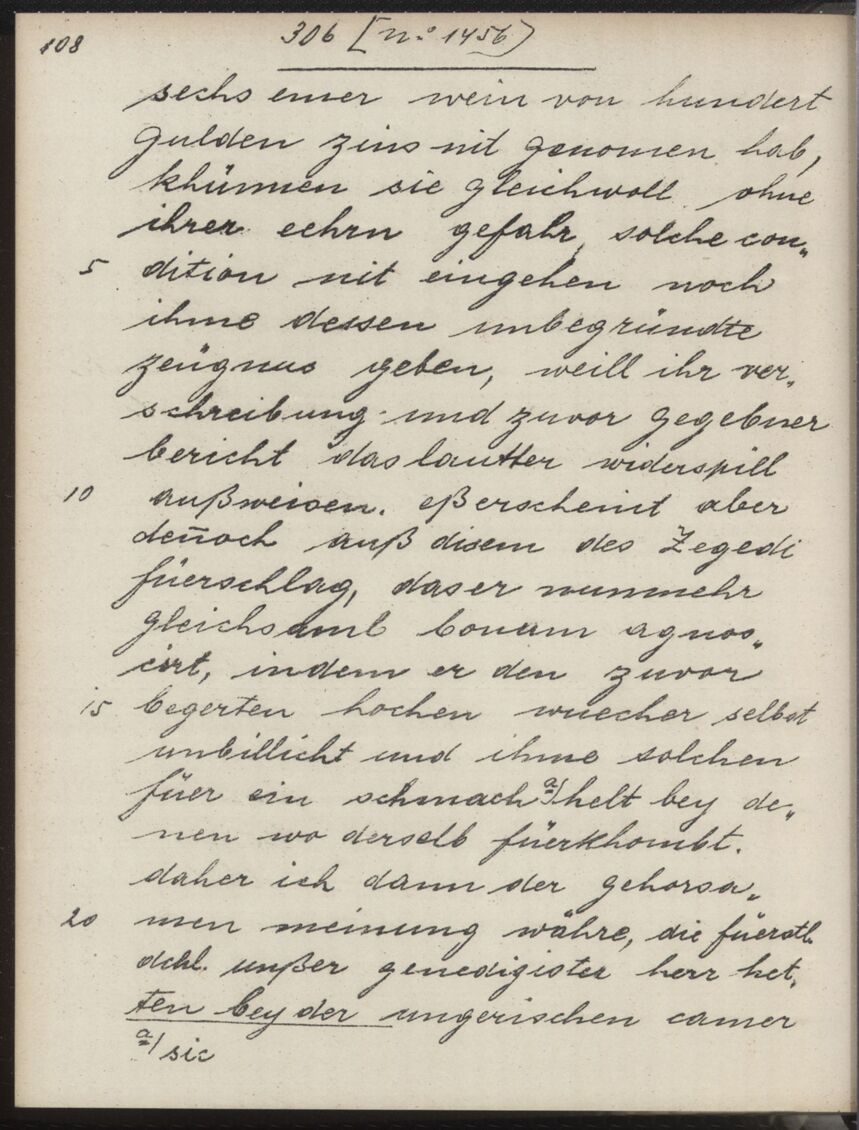 108
306 [n.o 1456)
sechs emer wein von hundert
gulden zins nit genomen hab,
khünnen sie gleichwoll ohne
ihrer eehrn gefahr, solche con„
5 dition nit eingehen noch
ihme dessen unbegründte
zeügnus geben, weill ihr ver„
schreibung und zuvor gegebner
bericht das lautter widerspill
10 außweisen. eß erscheint aber
den̄och auß disem des Zegedi
füerschlag, das er nunmehr
gleichsamb bonum agnos„
cirt, indem er den zuvor
15 begerten hochen wuecher selbst
unbillicht und ihme solchen
füer ein schmach a/ helt bey de„
nen wo derselb fürkhombt.
daher ich dann der gehorsa„
20 men meinung währe, die füerstl.
dchl. unßer genedigister herr het„
ten bey der ungerischen camer
a/ sic